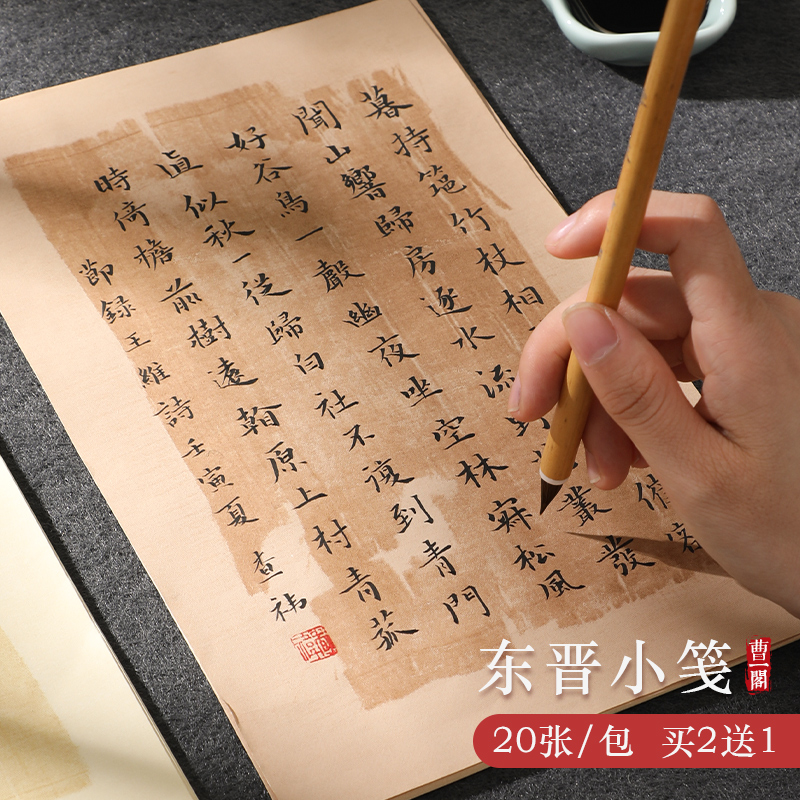 暮持筇竹杖相催客
聞山響歸房逐水流野叢發
好谷鳥一聲幽夜坐空林寂松風
直似秋一從歸白社不復到青門
時倚檐前樹遠看原上村青菰
節録王維詩壬寅夏 查祎
东晋小笺
曹一閣
20张/包 买2送1